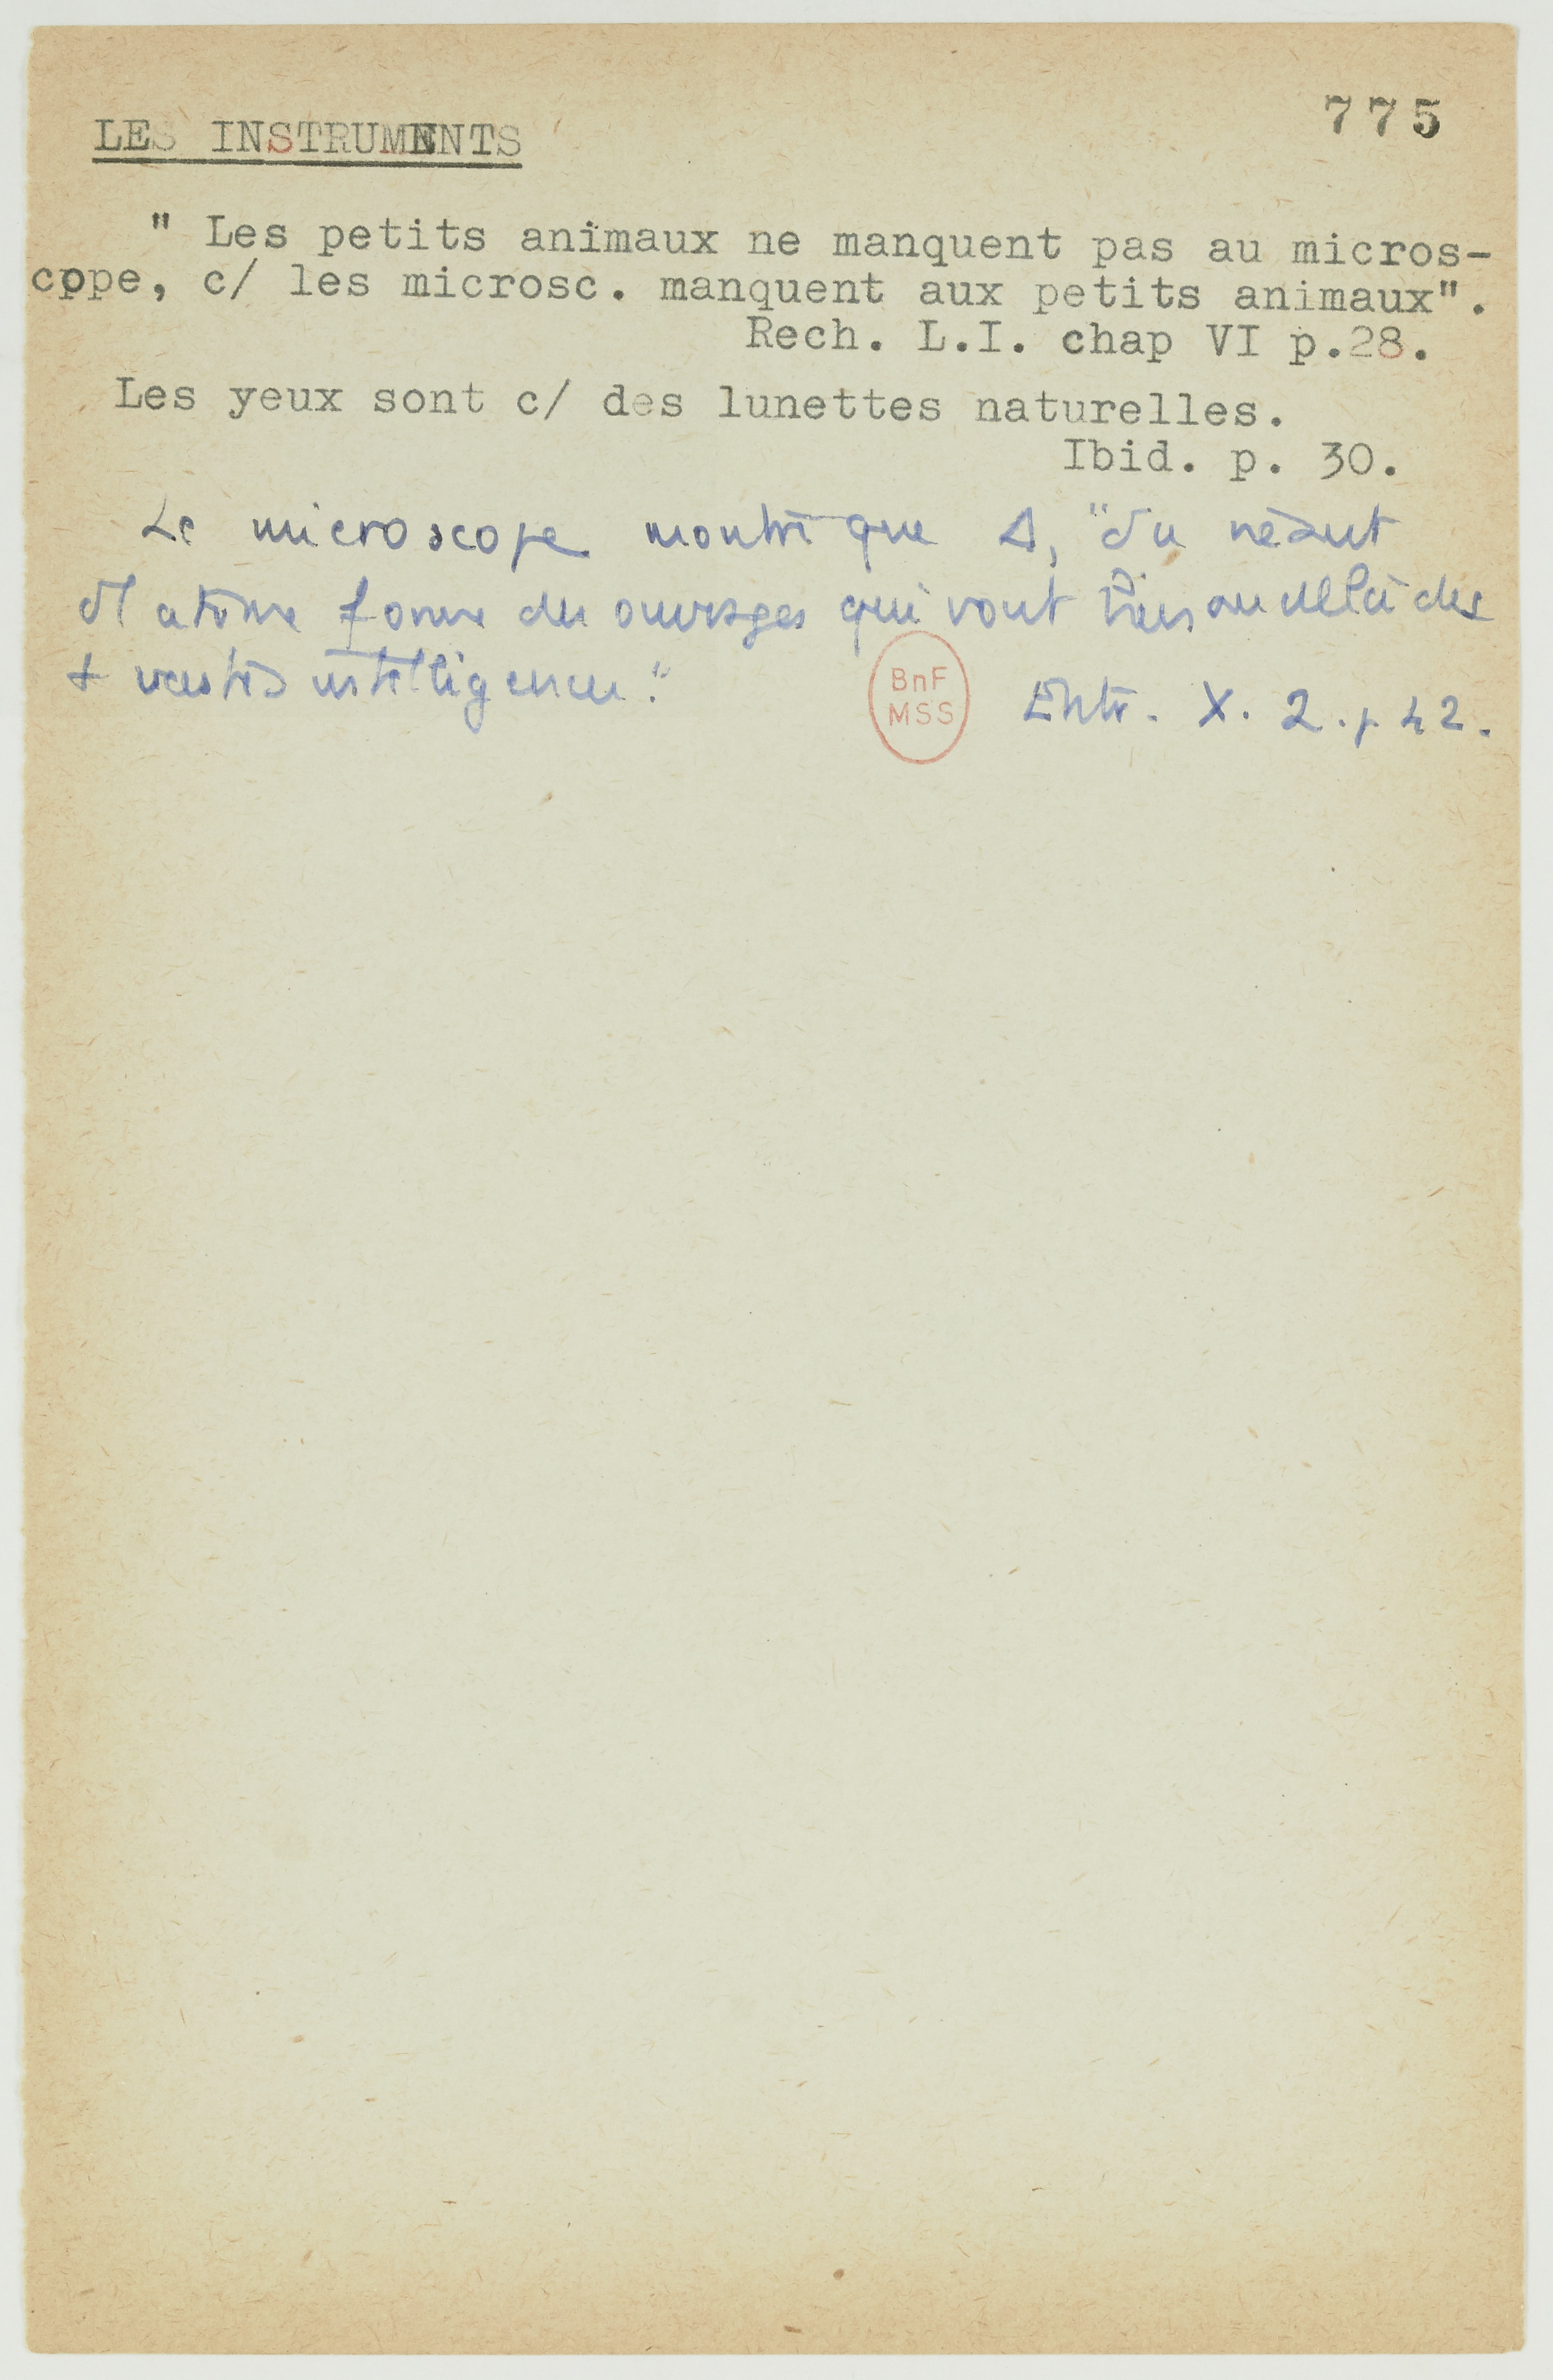 775
LES INSTRUMENTS
" Les petits animaux ne manquent pas au micros-
cope, c/ les microsc. manquent aux petits animaux".
Rech. L.I. chap VI p.28.
Les yeux sont c/ des lunettes naturelles.
Ibid. p. 30.
Le microscope montre que Δ, "du néant
d'1 atome forme des ouvrages qui vont bien au delà des
+ vastes intelligences."
BnF
MSS
Entr. X. 2. p 42.